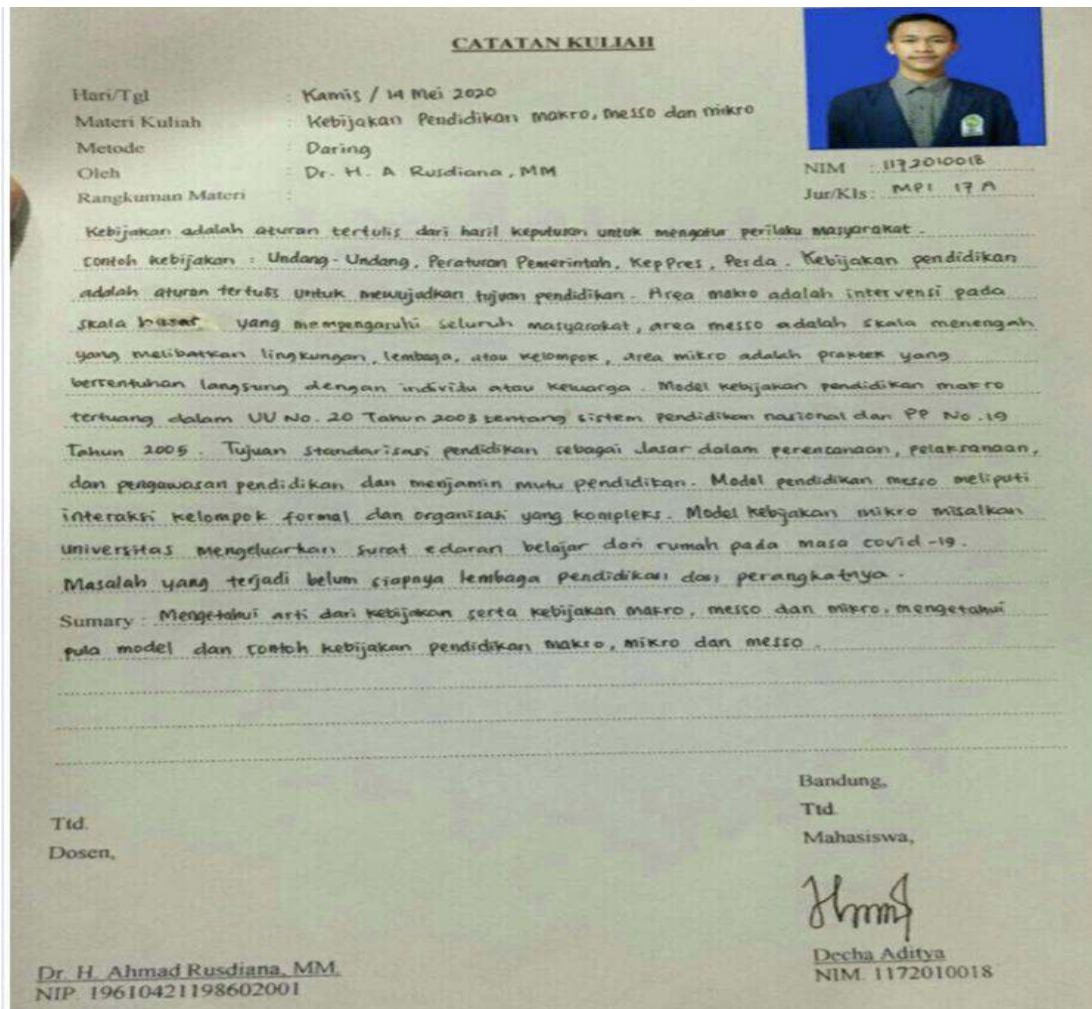 CATATAN KULIAH
Hari/Tgl : Kamis / 14 Mei 2020
Materi Kuliah : Kebijakan Pendidikan makro, messo dan mikro
Metode : Daring
Oleh : Dr. H. A Rusdiana, MM
Rangkuman Materi :
NIM : 1172010018
Jur/Kls : MPI 17 A
Kebijakan adalah aturan tertulis dari hasil keputusan untuk mengatur perilaku masyarakat.
contoh kebijakan : Undang-Undang, Peraturan Pemerintah, KepPres, Perda. Kebijakan pendidikan
adalah aturan tertulis untuk mewujudkan tujuan pendidikan. Area makro adalah intervensi pada
skala besar yang mempengaruhi seluruh masyarakat, area messo adalah skala menengah
yang melibatkan lingkungan, lembaga, atau kelompok, area mikro adalah praktek yang
bersentuhan langsung dengan individu atau keluarga. Model kebijakan pendidikan makro
tertuang dalam UU No. 20 Tahun 2003 tentang sistem pendidikan nasional dan PP No. 19
Tahun 2005. Tujuan standarisasi pendidikan sebagai dasar dalam perencanaan, pelaksanaan,
dan pengawasan pendidikan dan menjamin mutu pendidikan. Model pendidikan messo meliputi
interaksi kelompok formal dan organisasi yang kompleks. Model kebijakan mikro misalkan
universitas mengeluarkan surat edaran belajar dari rumah pada masa covid-19.
Masalah yang terjadi belum siapnya lembaga pendidikan dan perangkatnya.
Sumary : Mengetahui arti dari kebijakan serta kebijakan makro, messo dan mikro, mengetahui
pula model dan contoh kebijakan pendidikan makro, mikro dan messo.
Bandung,
Ttd.
Mahasiswa,
Ttd.
Dosen,
Decha Aditya
NIM. 1172010018
Dr. H. Ahmad Rusdiana, MM.
NIP. 196104211198602001